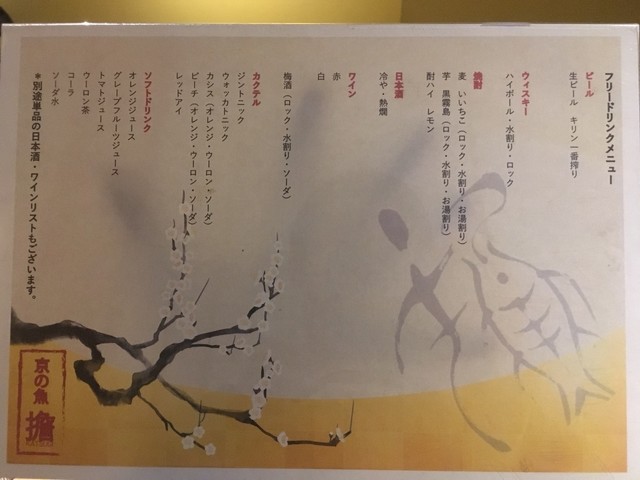 フリードリンクメニュー
ビール
生ビール キリン一番搾り
ウィスキー
ハイボール・水割り・ロック
焼酎
麦 いいちこ(ロック・水割り・お湯割り)
芋 黒霧島(ロック・水割り・お湯割り)
酎ハイ レモン
日本酒
冷や・熱燗
ワイン
赤
白
梅酒(ロック・水割り・ソーダ)
カクテル
ジントニック
ウォッカトニック
カシス(オレンジ・ウーロン・ソーダ)
ピーチ(オレンジ・ウーロン・ソーダ)
レッドアイ
ソフトドリンク
オレンジジュース
グレープフルーツジュース
トマトジュース
ウーロン茶
コーラ
ソーダ水
*別途単品の日本酒・ワインリストもございます。
京の魚
擔